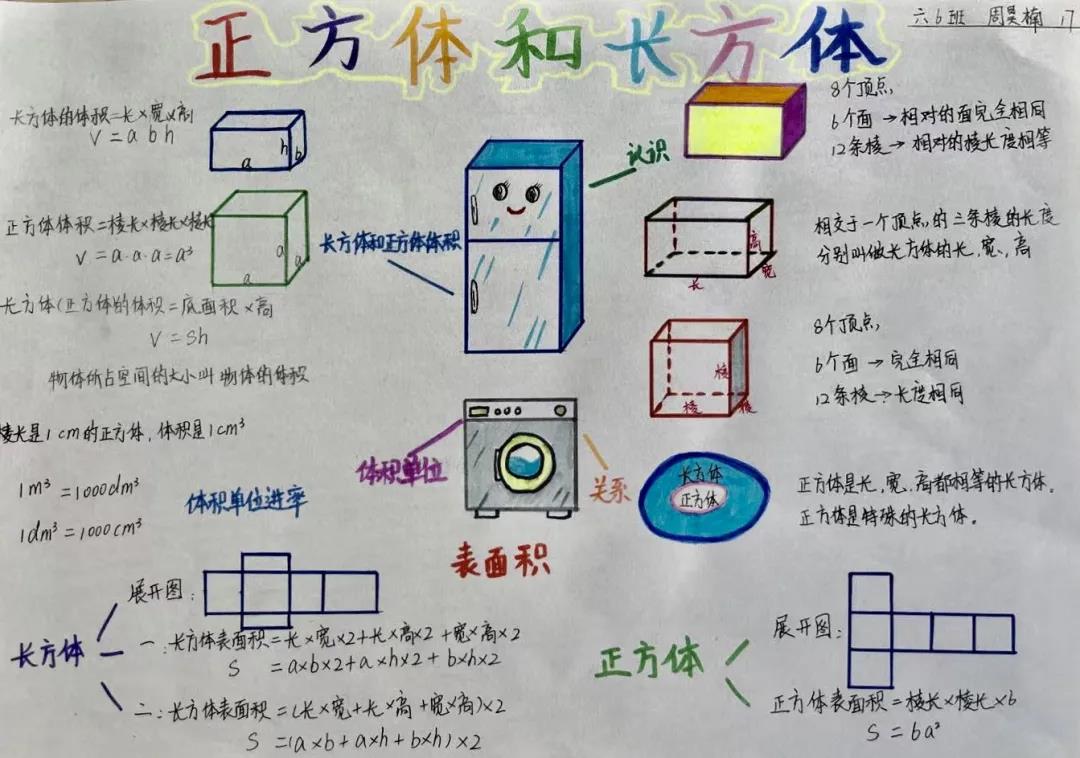 正方体和长方体
六6班 周昊楠 17
长方体的体积=长×宽×高
V=abh
a
h
b
正方体体积=棱长×棱长×棱长
V=a·a·a=a³
a
a
a
长方体(正方体的体积=底面积×高
V=Sh
物体所占空间的大小叫物体的体积
棱长是1cm的正方体,体积是1cm³
1m³=1000dm³
1dm³=1000cm³
体积单位进率
长方体和正方体体积
体积单位
认识
8个顶点,
6个面→相对的面完全相同
12条棱→相对的棱长度相等
高
宽
长
相交于一个顶点,的三条棱的长度
分别叫做长方体的长、宽、高
棱
棱
棱
8个顶点,
6个面→完全相同
12条棱→长度相同
关系
长方体
正方体
正方体是长、宽、高都相等的长方体。
正方体是特殊的长方体。
表面积
长方体
展开图:
一:长方体表面积=长×宽×2+长×高×2+宽×高×2
S=a×b×2+a×h×2+b×h×2
二:长方体表面积=(长×宽+长×高+宽×高)×2
S=(a×b+a×h+b×h)×2
正方体
展开图:
正方体表面积=棱长×棱长×6
S=6a²